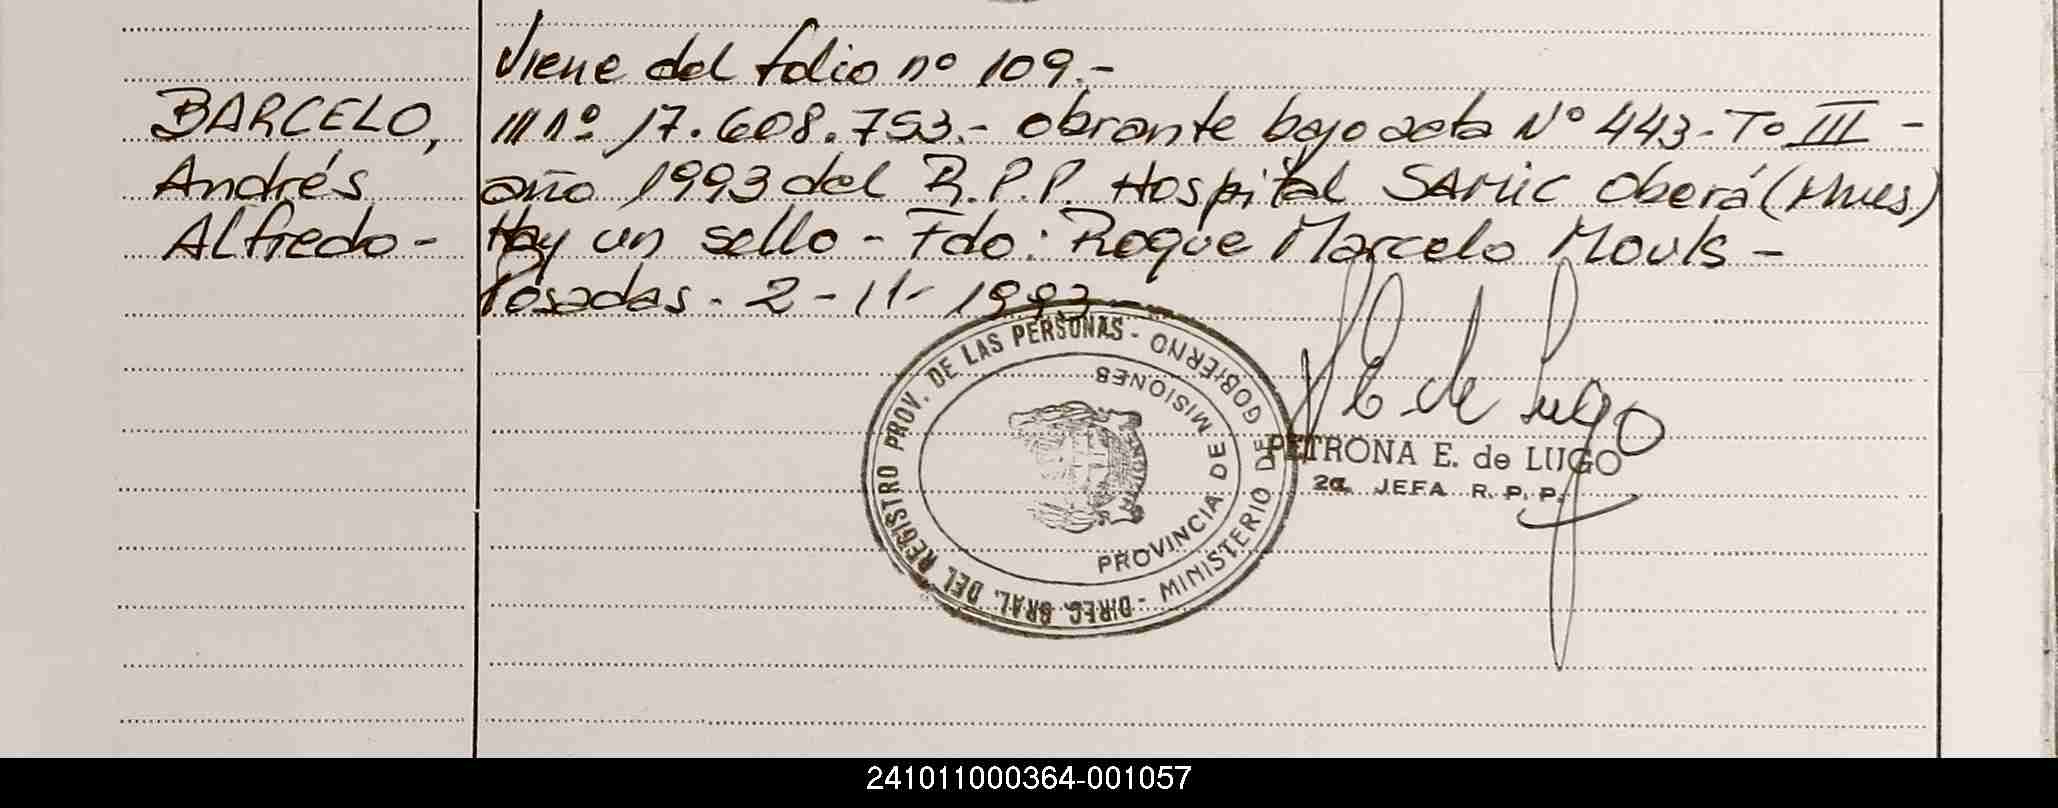 Viene del folio nº 109.-
BARCELO,
Andrés
Alfredo-
M nº 17.608.753.- obrante bajo acta Nº 443- Tº III -
año 1993 del R.P.P. Hospital SAMIC Oberá (Mnes)
Hay un sello - Fdo: Roque Marcelo Mouls -
Posadas - 2-11-1993-
DIREC. GRAL. DEL REGISTRO PROV. DE LAS PERSONAS -
MINISTERIO DE GOBIERNO
PROVINCIA DE MISIONES
E de Lugo
PETRONA E. de LUGO
2a. JEFA R.P.P.
241011000364-001057